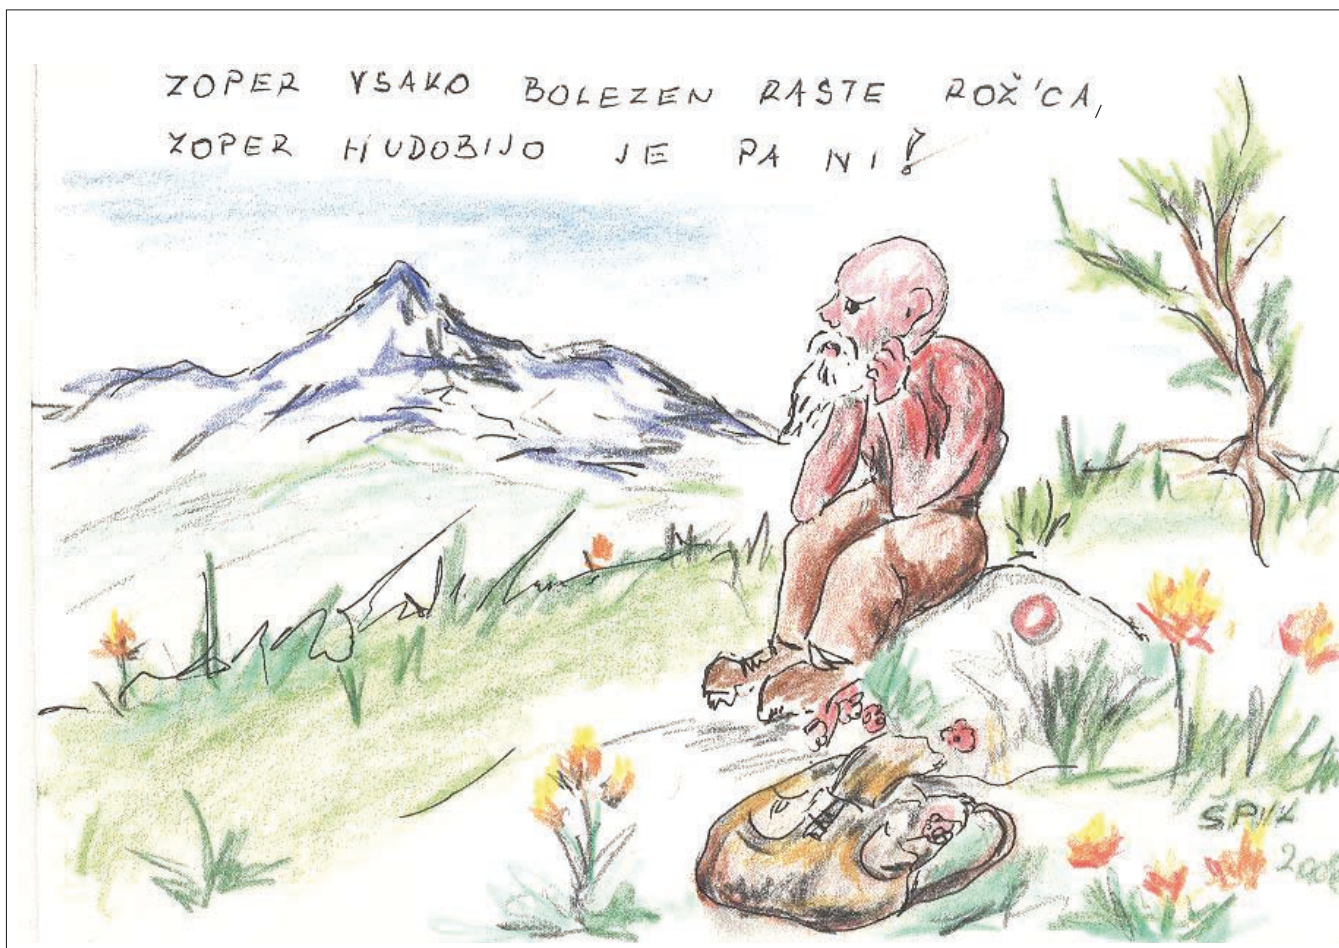 ZOPER VSAKO BOLEZEN RASTE ROŽ'CA,
ZOPER HUDOBIJO JE PA NI!